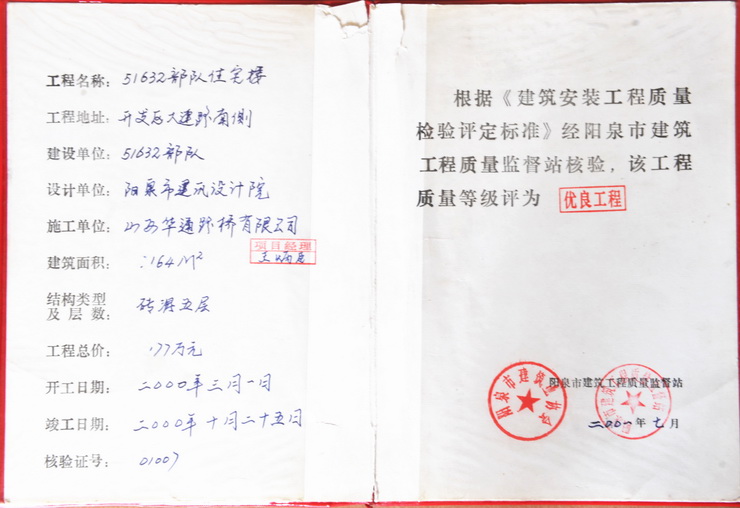 工程名称: 51632部队住宅楼
工程地址: 开发区大连路南侧
建设单位: 51632部队
设计单位: 阳泉市建筑设计院
施工单位: 山西华通路桥有限公司
项目经理
建筑面积: 164M²
结构类型
及层数: 砖混五层
工程总价: 177万元
开工日期: 二000年三月一日
竣工日期: 二000年十月二十五日
核验证号: 01007
根据《建筑安装工程质量
检验评定标准》经阳泉市建筑
工程质量监督站核验,该工程
质量等级评为 优良工程
阳泉市建筑工程质量监督站
二00一年七月